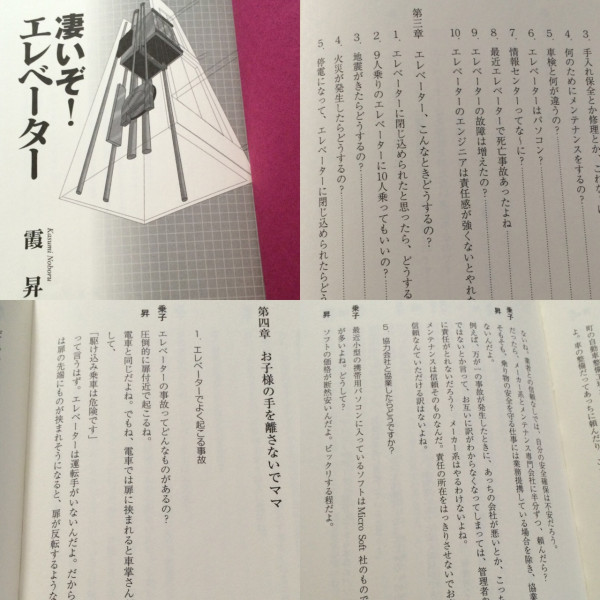 凄いぞ！
エレベーター
霞 昇
Kasumi Noboru
3．手入れ保全とか修理とか、これな
4．何のためにメンテナンスをするの？
5．車検と何が違うの？
6．エレベーターはパソコン？
7．情報センターってな～に？
8．最近エレベーターで死亡事故あったよね
9．エレベーターの故障は増えたの？
10．エレベーターのエンジニアは責任感が強くないとやれた
第三章 エレベーター、こんなときどうするの？
1．エレベーターに閉じ込められたと思ったら、どうする
2．9人乗りのエレベーターに10人乗ってもいいの？
3．地震がきたらどうするの？
4．火災が発生したらどうするの？
5．停電になって、エレベーターに閉じ込められたらどう
町の自動車整備
よ。車の整備だってあっちに頼んだり
乗子 だったら、メーカー系とメンテナンス専門会社に半分ずつ、頼んだら？
昇 そもそも、乗り物の安全を守る仕事には業務提携している場合を除き、協業
ないんだよ。
例えば、万が一の事故が発生したときに、あっちの会社が悪いとか、こっち
ではないとか言って、お互いに訳がわからなくなってしまっては、管理者
に責任がとれないだろう？ メーカー系はやるわけないよね。
メンテナンスは信頼そのものなんだ。責任の所在をはっきりさせないでお
信頼なんていただける訳はないよね。
5．協力会社と協業したらどうですか？
乗子 最近小型の携帯用パソコンに入っているソフトはMicro Soft 社のもので
が多いよね。どうして？
昇 ソフトの価格が断然安いんだよ。ビックリする程だよ。
第四章 お子様の手を離さないでママ
1．エレベーターでよく起こる事故
乗子 エレベーターの事故ってどんなものがあるの？
昇 圧倒的に扉付近で起こるね。
電車と同じだよね。でもね、電車では扉に挟まれると車掌さん
して、
「駆け込み乗車は危険です」
って言うはず。エレベーターは運転手がいないんだよ。だから
は扉の先端にものが挟まれそうになると、扉が反転するような